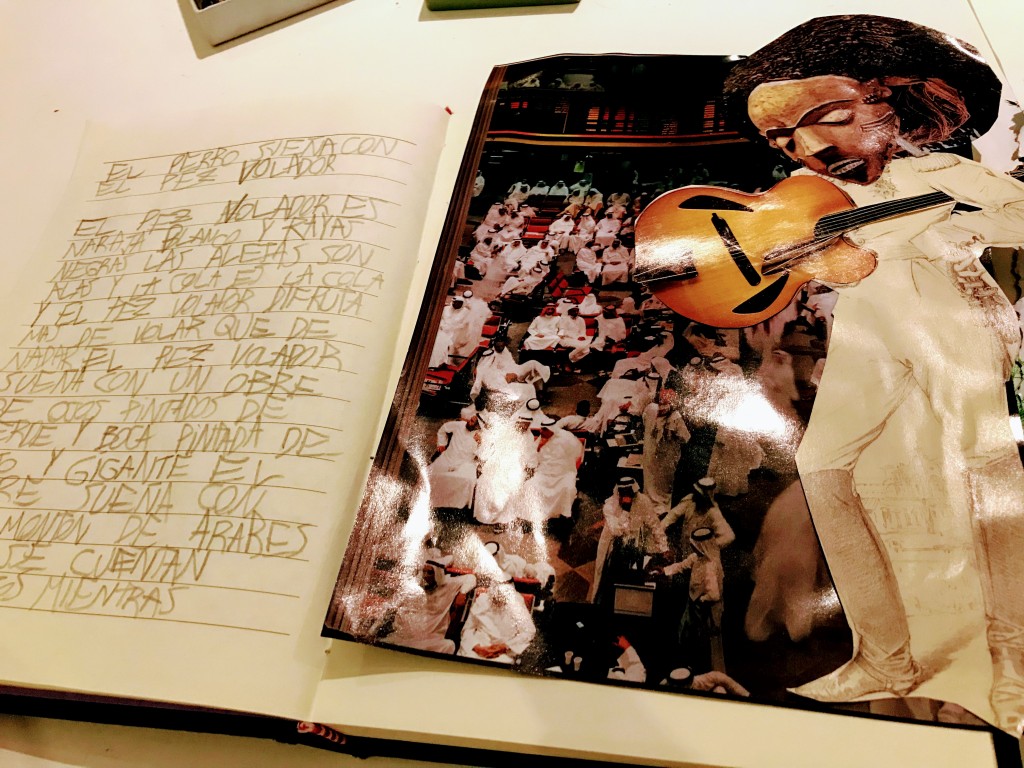 EL PERRO SUENA CON
EL PEZ VOLADOR
EL PEZ VOLADOR ES
NARAJA BLANCO Y RAYAS
NEGRAS LAS ALETAS SON
Y LA COLA ES LA COLA
Y EL PEZ VOLADOR DISFRUTA
MAS DE VOLAR QUE DE
NADAR EL PEZ VOLADOR
SUENA CON UN OBRE
OJOS PINTADOS DE
Y BOCA PINTADA DE
Y GIGANTE EL
RE SUENA CON
MONTON DE ARABES
SE CUENTAN
OS MIENTRAS